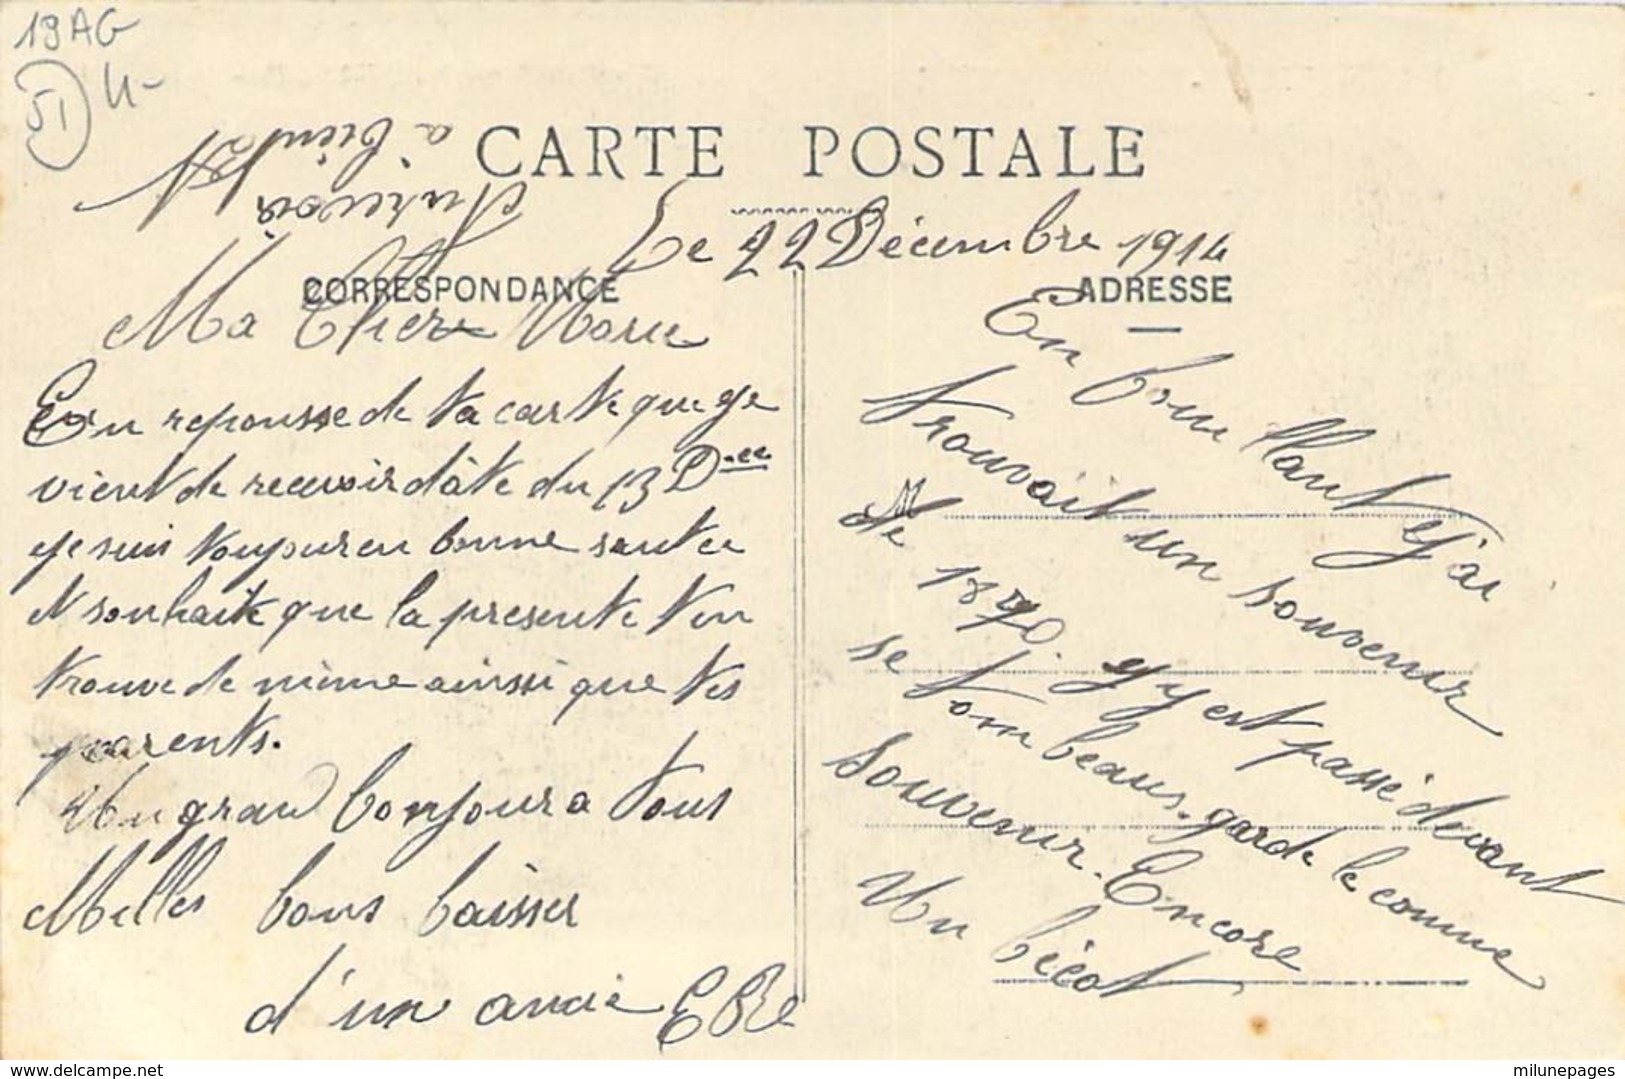 19AG
51
4-
CARTE POSTALE
Aurevoir
à bientot
Le 22 Décembre 1914
CORRESPONDANCE
ADRESSE
Ma Chere Marie
En reponsse de ta carte que ge
vient de recevoir dâte du 13 D.ce
ge suis toujour en bonne santee
et souhaite que la presente ten
trouve de même ainssi que tes
parents.
Un grand bonjour a tous
Milles bons baisser
d'un amie
En fouillant ej'ai
trouvait un souvenir
de 1870. gy est passé devant
se tombeaus. garde le comme
souvenir. Encore
Un bécot
delcampe.net
milunepages